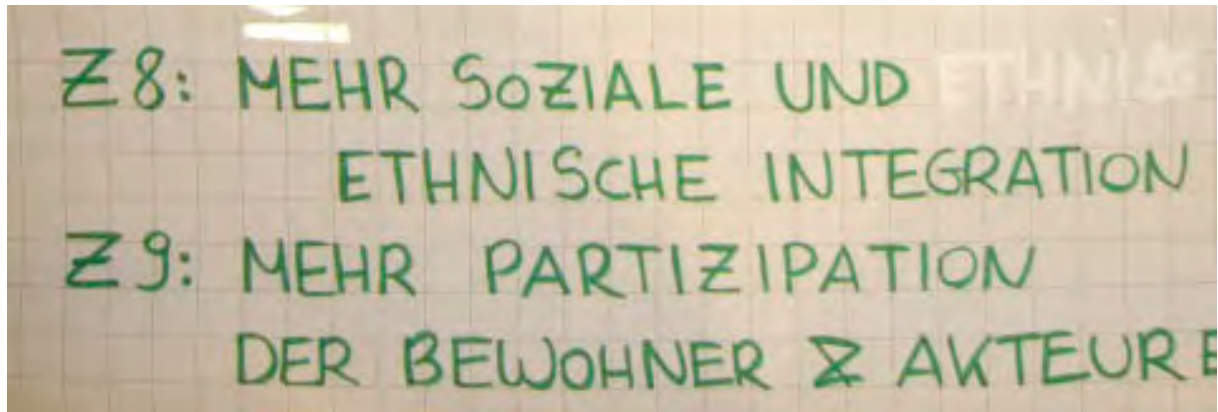 Z8: MEHR SOZIALE UND ETHNIS
ETHNISCHE INTEGRATION
Z9: MEHR PARTIZIPATION
DER BEWOHNER & AKTEURE